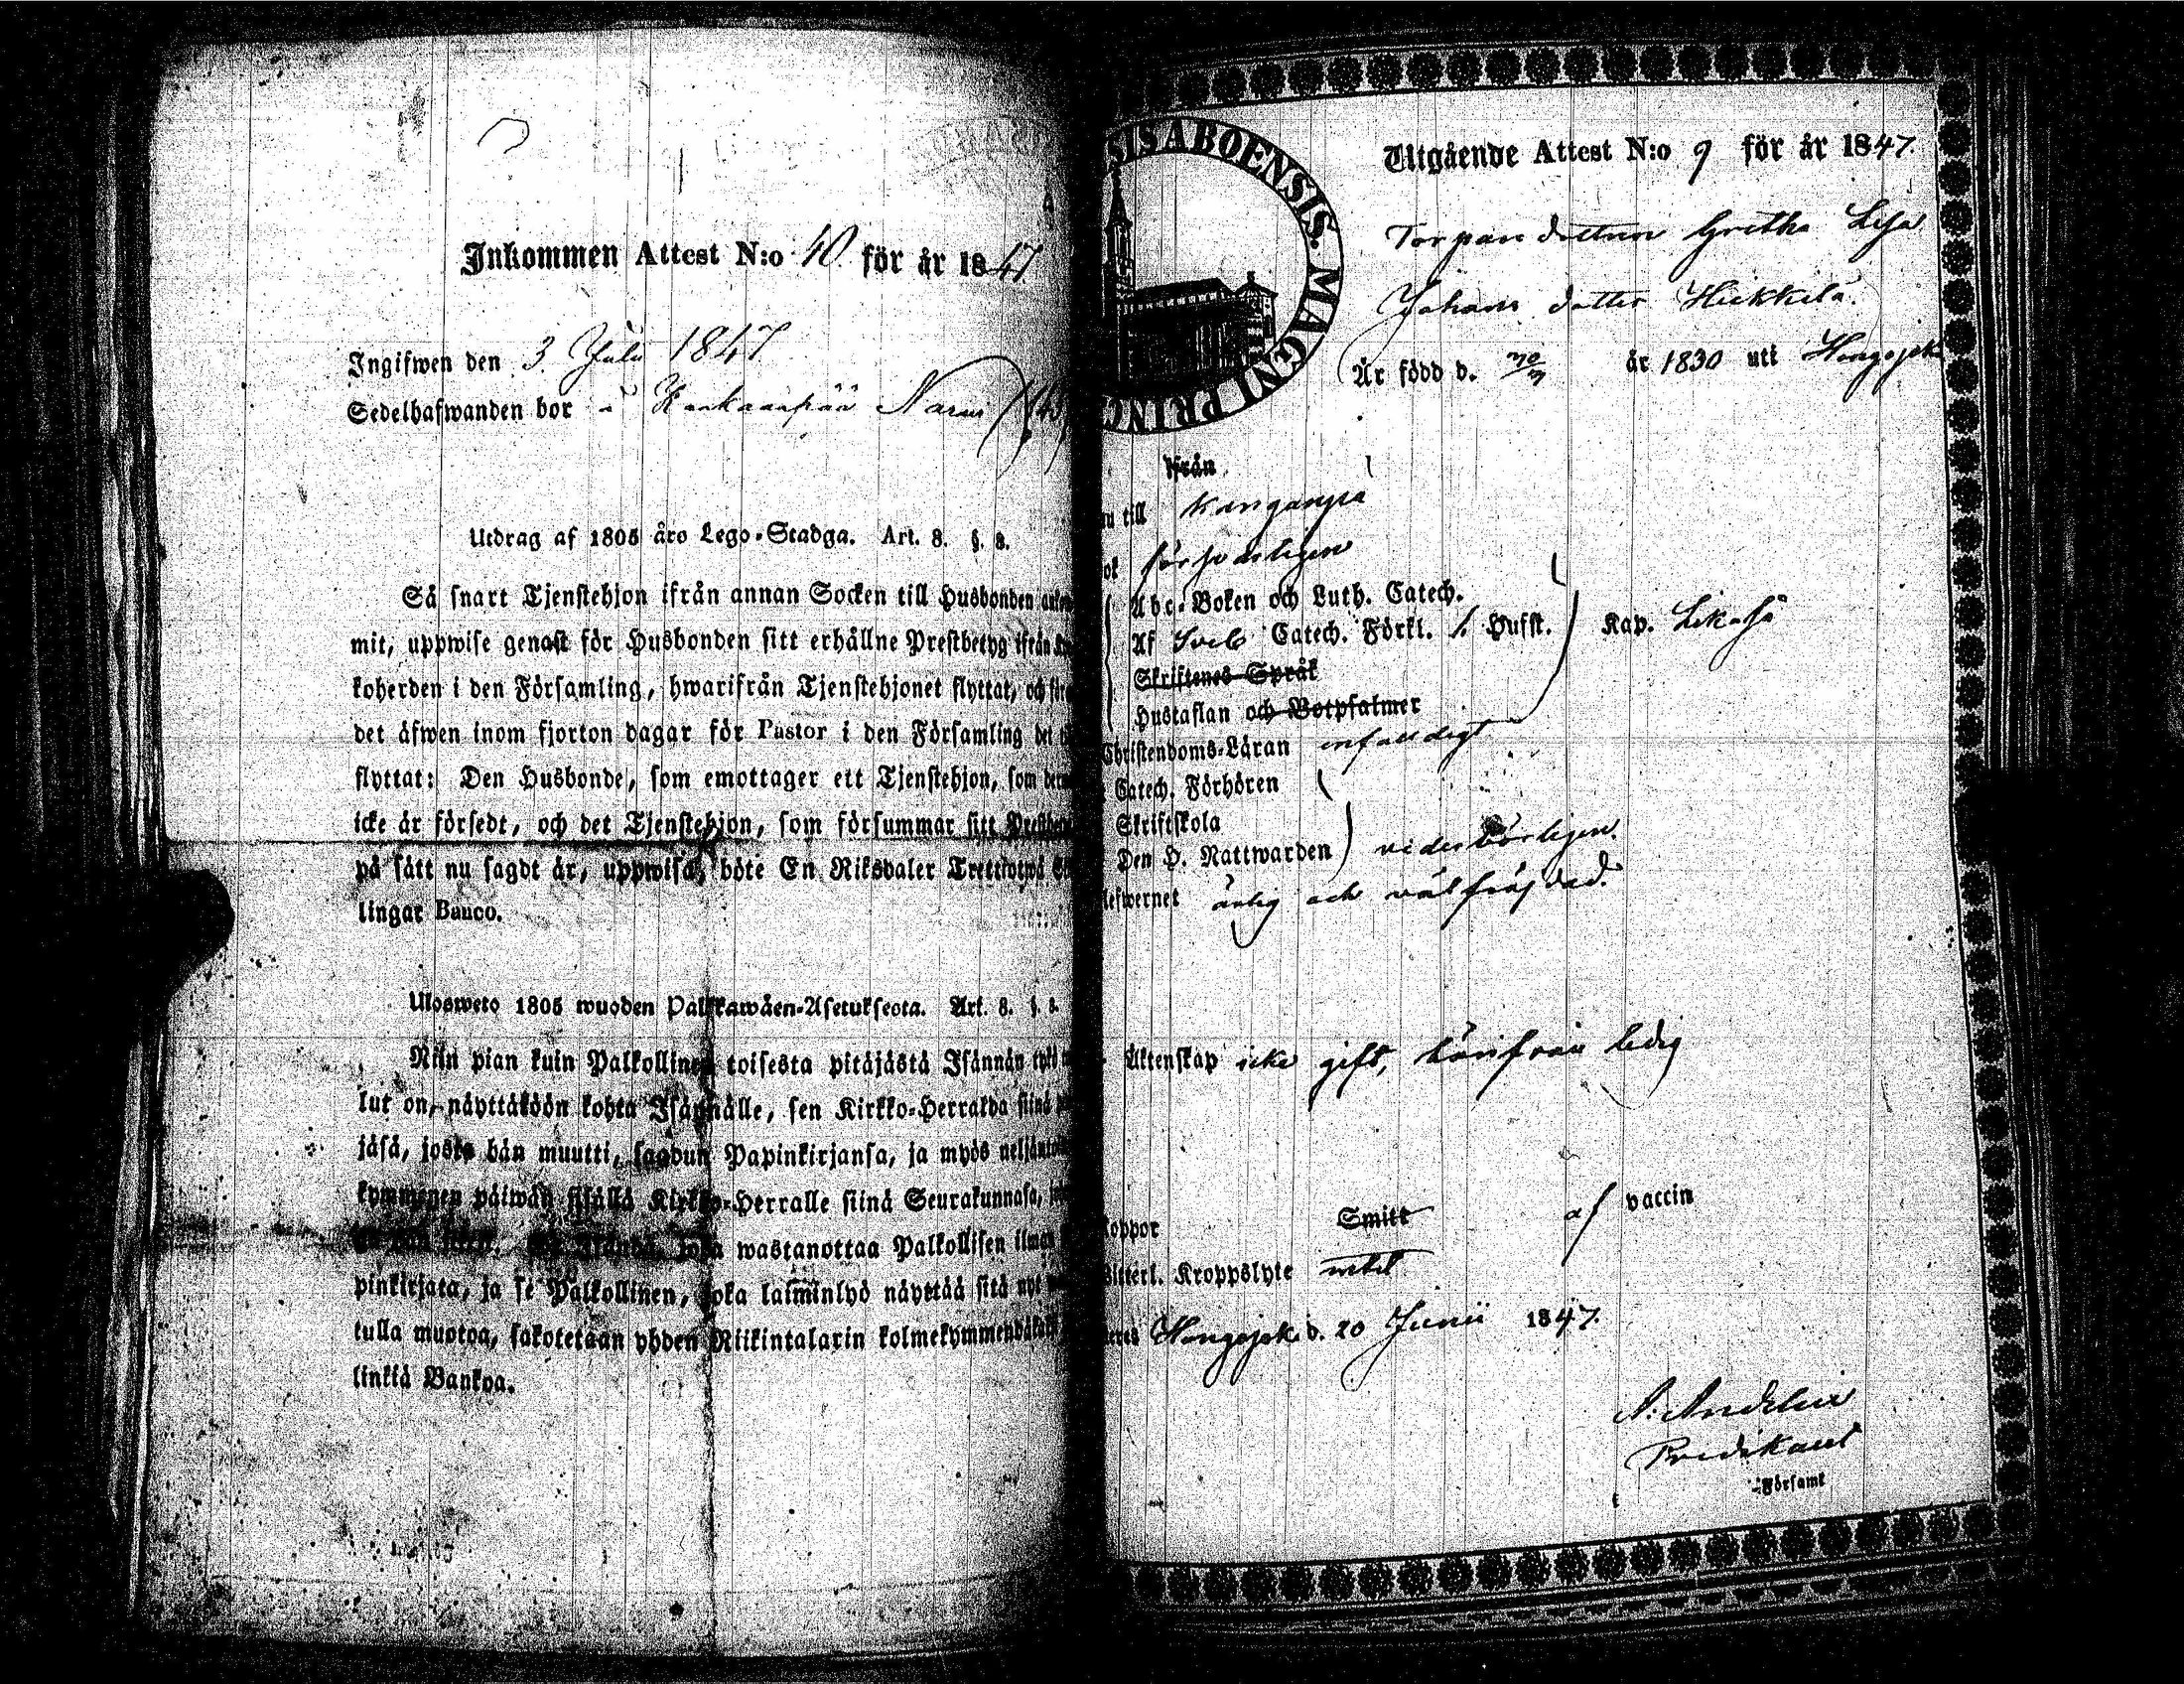 Inkommen Attest N:o 40. för år 1847.
Ingifwen den 3 Juli 1847
Sedelhafwanden bor i Kankaanpää Narwi
Utdrag af 1805 års Lego-Stadga. Art. 8. §. 8.
Så snart Tjenstehjon ifrån annan Socken till Husbonden
mit, uppwise genast för Husbonden sitt erhållne Prestbetyg ifrån
koherden i den Församling, hwarifrån Tjenstehjonet flyttat, och
det äfwen inom fjorton dagar för Pastor i den Församling det
flyttat: Den Husbonde, som emottager ett Tjenstehjon, som
icke är försedt, och det Tjenstehjon, som försummar sitt
på sätt nu sagdt är, uppwisa, böte En Riksdaler Trettiotwå
lingar Banco.
Ulosweto 1805 wuoden Palkkawäen-Asetuksesta. Art. 8. §. 8.
Niin pian kuin Palkollinen toisesta pitäjästä Isännän tykö
lut on, näyttäköön kohta Isännälle, sen Kirkko-Herralda siinä
jäsä, josta hän muutti, saadun Papinkirjansa, ja myös
kymmenen päiwän sisällä Kirkko-Herralle siinä Seurakunnasa,
Isändä, joka wastanottaa Palkollisen ilman
pinkirjata, ja se Palkollinen, joka laiminlyö näyttää sitä nyt
tulla muotoa, sakotetaan yhden Riikintalarin kolmekymmendäkaksi
linkiä Bankoa.
SIS ABOENSIS. MAGNI PRINC
Utgående Attest N:o 9 för år 1847
Torparedottren Gretha Lisa
Johans dotter Heikkilä.
Är född d. 30/9 år 1830 uti Hongojoki
ifrån
till Kanganpä
försvarligen
Abc-Boken och Luth. Catech.
Af Sveb Catech. Förkl. 1. Hufst. Kap. Likaså
Skriftenes Språk
Hustaflan och Botpsalmer
Christendoms-Läran enfaldigt
Catech. Förhören
Skriftskola
Den H. Nattwarden vederbörligen.
lefwernet ärlig och välfräjdad.
Äktenskap icke gift, härifrån ledig
koppor Smitt af vaccin
Kroppslyte intet
Hongojoki d. 20 Junii 1847.
Predikant
Församl